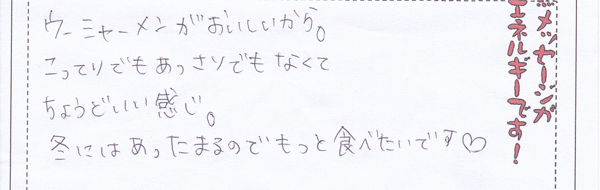 ウーシャーメンがおいしいから。
こってりでもあっさりでもなくて
ちょうどいい感じ。
冬にはあったまるのでもっと食べたいです♡
メッセージが
エネルギーです!